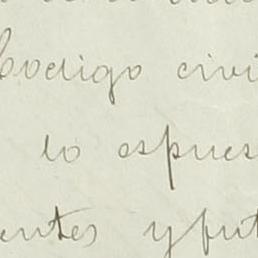 Codigo civi
lo espues
entes y fut